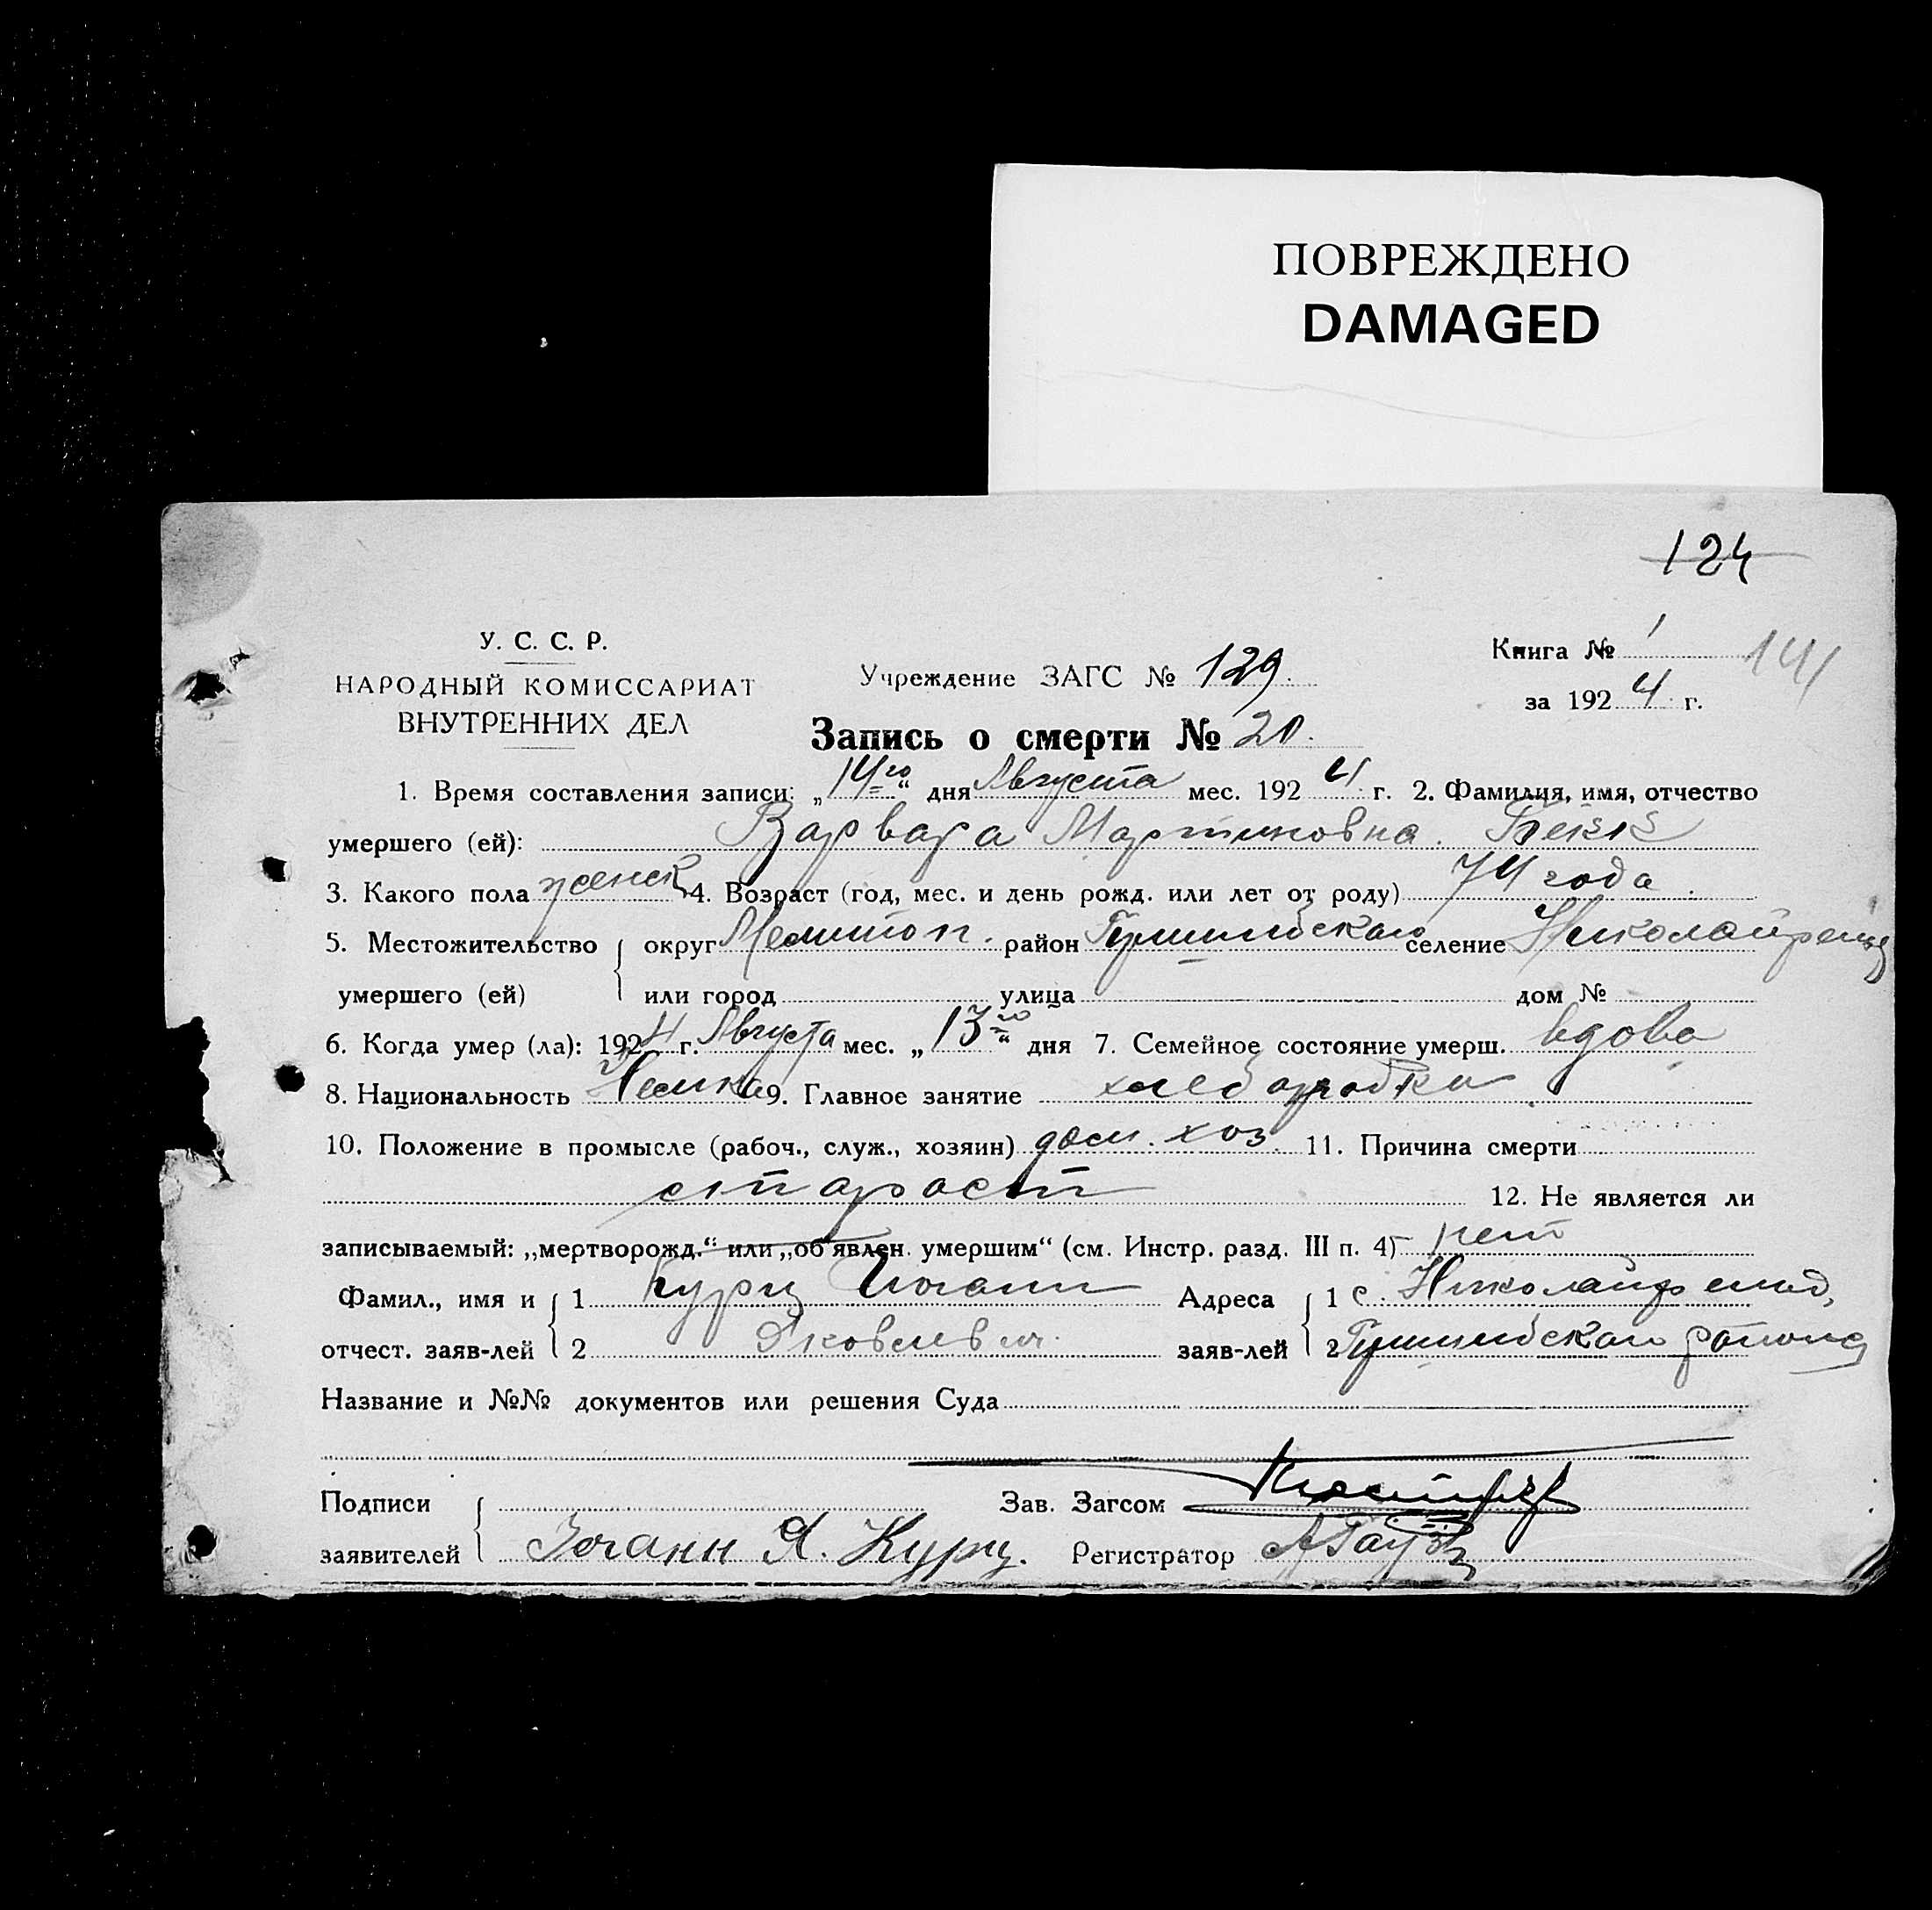 ПОВРЕЖДЕНО
DAMAGED
124
У. С. С. Р.
НАРОДНЫЙ КОМИССАРИАТ
ВНУТРЕННИХ ДЕЛ
Учреждение ЗАГС № 129.
Книга № 1 141
за 1924 г.
Запись о смерти № 20.
1. Время составления записи: „14го“ дня Августа мес. 1924 г. 2. Фамилия, имя, отчество
умершего (ей): Варвара Мартиновна
3. Какого пола женск 4. Возраст (год, мес. и день рожд. или лет от роду) 74 года.
5. Местожительство округ Мелитоп. район селение
умершего (ей) или город улица дом №
6. Когда умер (ла): 1924 г. Августа мес. „13го“ дня 7. Семейное состояние умерш. вдова
8. Национальность Немка 9. Главное занятие
10. Положение в промысле (рабоч., служ., хозяин) дом. хоз. 11. Причина смерти
старост
12. Не является ли
записываемый: „мертворожд.“ или „об'явлен умершим“ (см. Инстр. разд. III п. 4) нет
Фамил., имя и 1 Курц Иоганн Адреса 1 с.
отчест. заяв-лей 2 заяв-лей 2 района
Название и №№ документов или решения Суда
Подписи Зав. Загсом
заявителей Іоганн Я. Курц. Регистратор